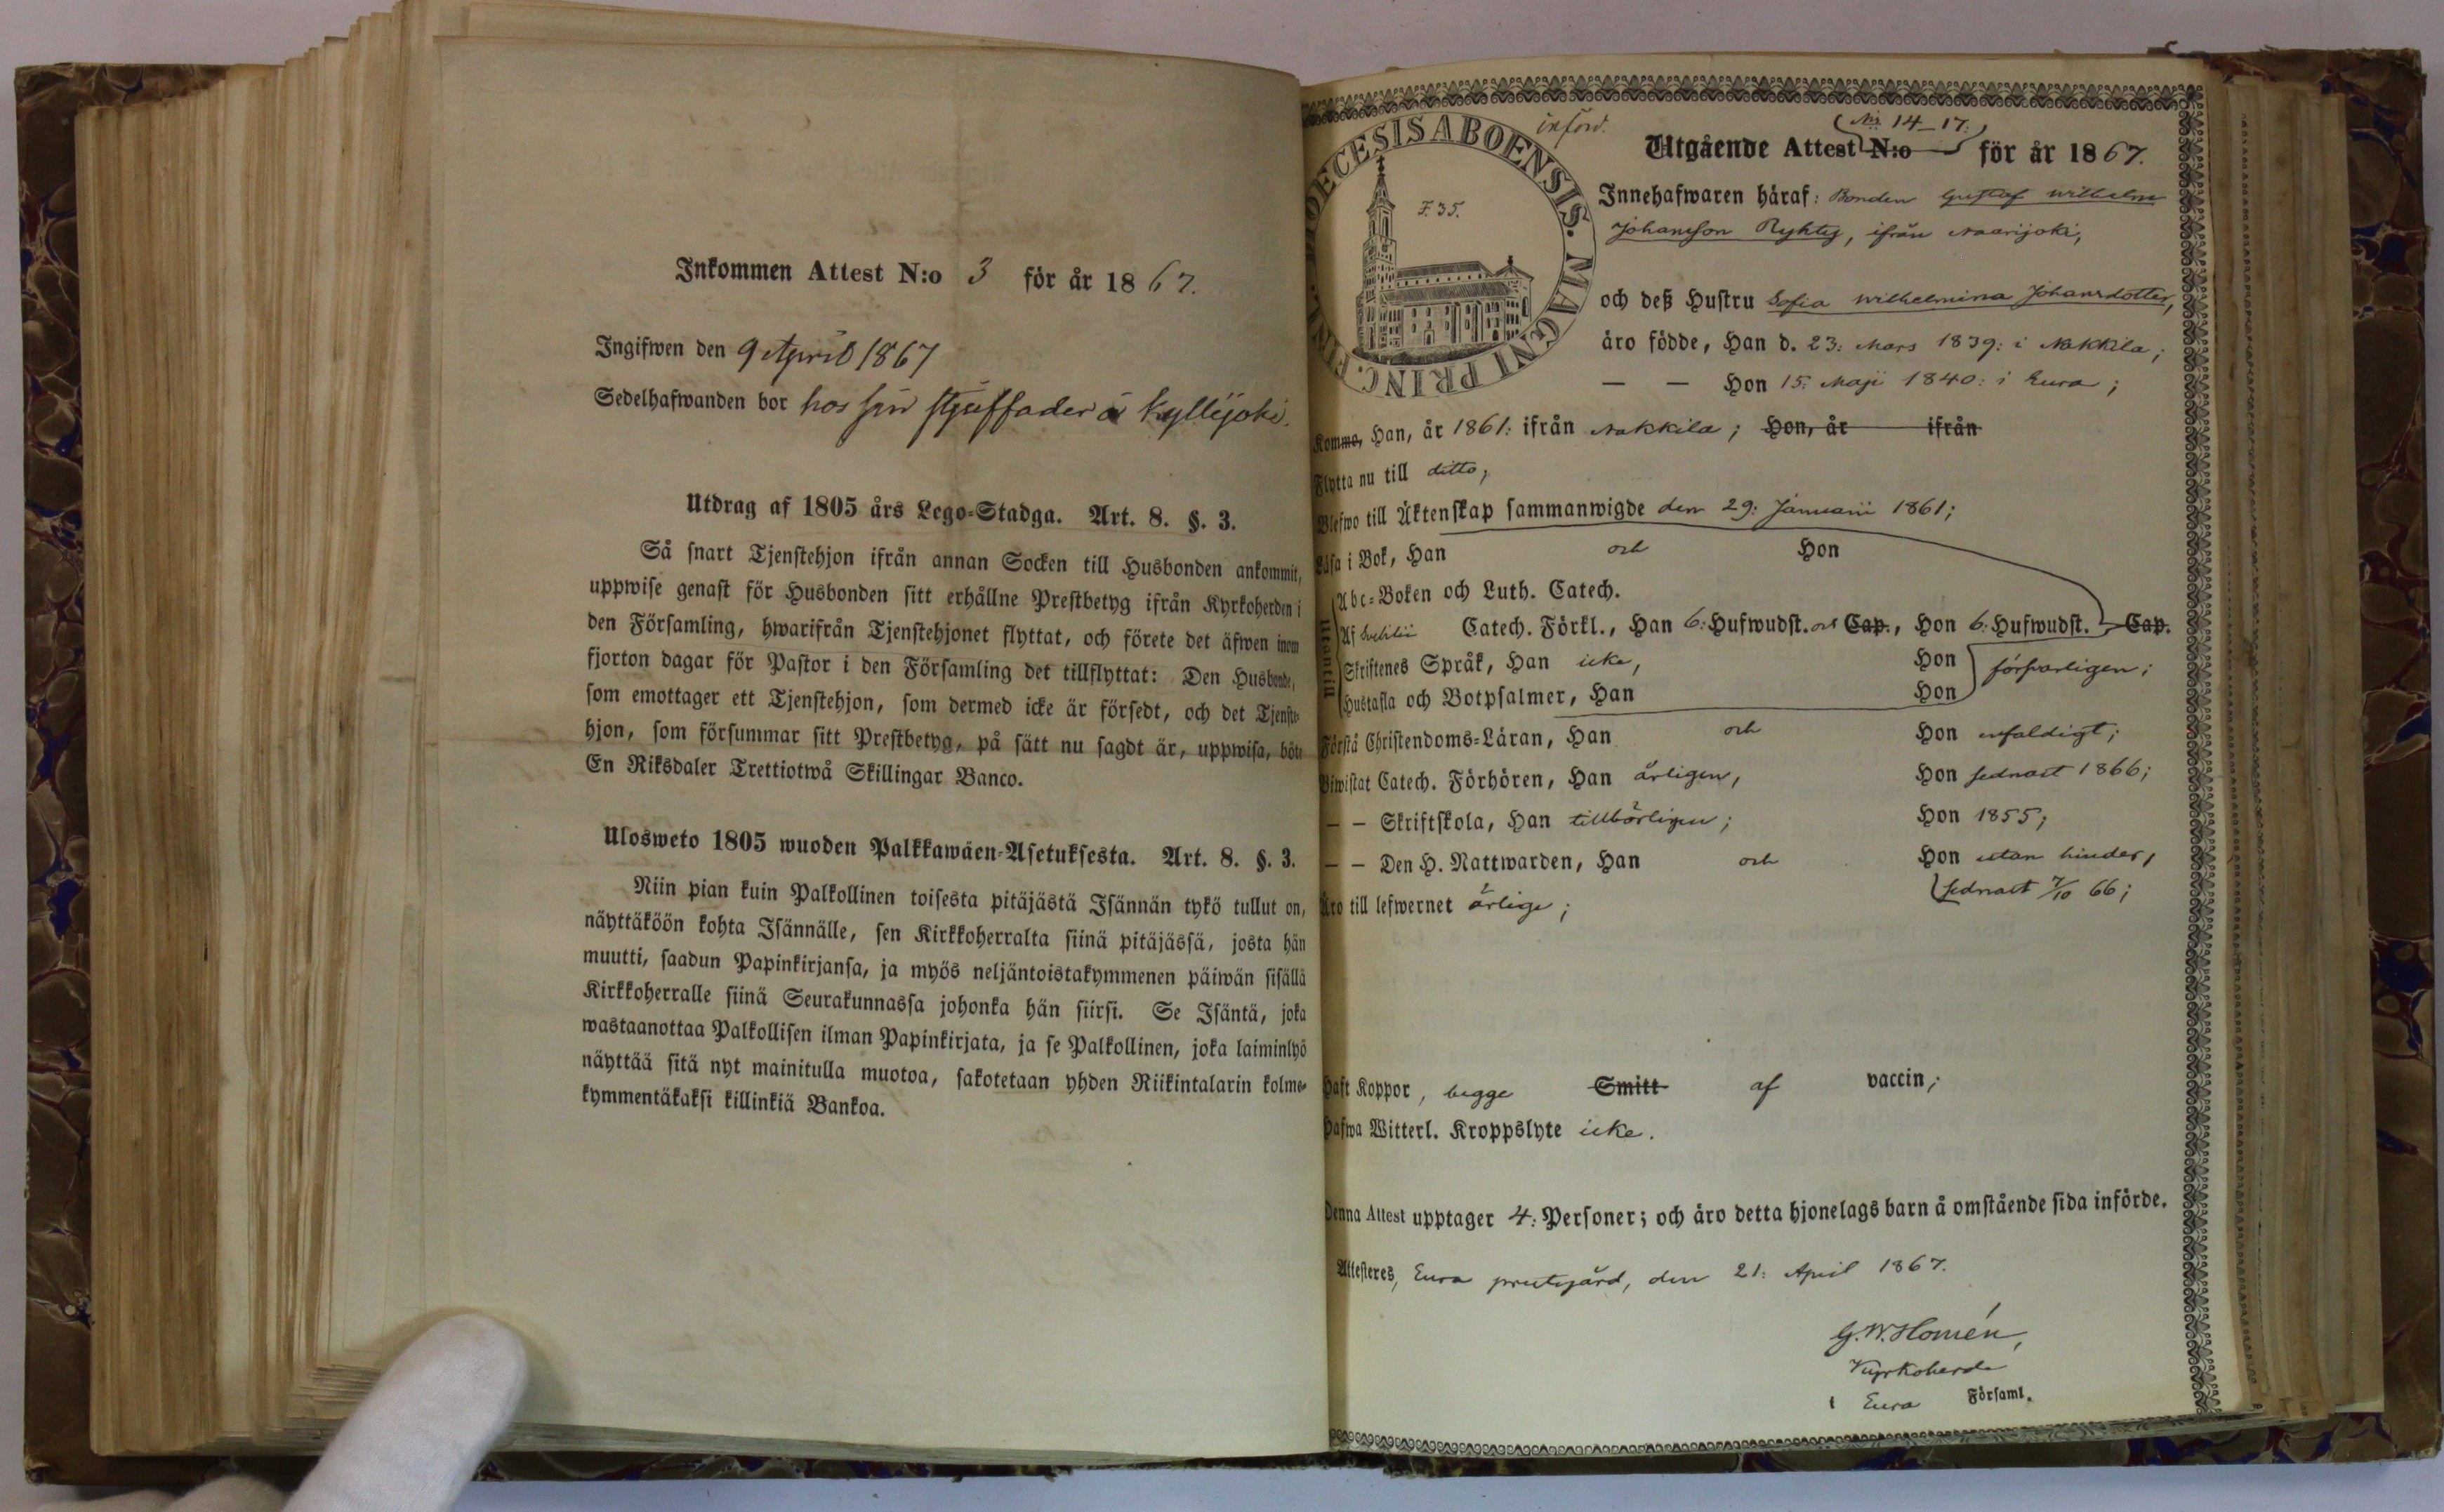 Inkommen Attest N:o 3 för år 1867.
Ingifwen den 9 April 1867
Sedelhafwanden bor hos sin styffader å Kyllijoki.
Utdrag af 1805 års Lego-Stadga. Art. 8. §. 3.
Så snart Tjenstehjon ifrån annan Socken till Husbonden ankommit,
uppwise genast för Husbonden sitt erhållne Prestbetyg ifrån Kyrkoherden i
den Församling, hwarifrån Tjenstehjonet flyttat, och förete det äfwen inom
fjorton dagar för Pastor i den Församling det tillflyttat: Den Husbonde,
som emottager ett Tjenstehjon, som dermed icke är försedt, och det Tjenste-
hjon, som försummar sitt Prestbetyg, på sätt nu sagdt är, uppwisa, böte
En Riksdaler Trettiotwå Skillingar Banco.
Ulosweto 1805 wuoden Palkkawäen-Asetuksesta. Art. 8. §. 3.
Niin pian kuin Palkollinen toisesta pitäjästä Isännän tykö tullut on,
näyttäköön kohta Isännälle, sen Kirkkoherralta siinä pitäjässä, josta hän
muutti, saadun Papinkirjansa, ja myös neljäntoistakymmenen päiwän sisällä
Kirkkoherralle siinä Seurakunnassa johonka hän siirsi. Se Isäntä, joka
wastaanottaa Palkollisen ilman Papinkirjata, ja se Palkollinen, joka laiminlyö
näyttää sitä nyt mainitulla muotoa, sakotetaan yhden Riikintalarin kolme-
kymmentäkaksi killinkiä Bankoa.
DIOECESIS ABOENSIS. MAGNI PRINC. FINL.
F. 35.
införd.
N:is 14–17:
Utgående Attest N:o för år 1867.
Innehafwaren häraf: Bonden Gustaf Wilhelm
Johansson Ryhtij, ifrån Naarijoki,
och deß Hustru Sofia Wilhelmina Johansdotter,
äro födde, Han d. 23: Mars 1839: i Nakkila;
— — Hon 15: Maji 1840: i Eura;
Komma, Han, år 1861: ifrån Nakkila; Hon, år ifrån
Flytta nu till ditto;
Blefwo till Äktenskap sammanwigde den 29: Januarii 1861;
Läsa i Bok, Han och Hon
Utantill
Abc-Boken och Luth. Catech.
Af Catech. Förkl., Han 6: Hufwudst. och Cap., Hon 6: Hufwudst. Cap.
Skriftenes Språk, Han icke, Hon
försvarligen;
Hustafla och Botpsalmer, Han Hon
Förstå Christendoms-Läran, Han och Hon enfaldigt;
Biwistat Catech. Förhören, Han årligen, Hon sednast 1866;
— — Skriftskola, Han tillbörligen; Hon 1855;
— — Den H. Nattwarden, Han och Hon utan hinder,
sednast 7/10 66;
Äro till lefwernet ärlige;
Haft Koppor, begge Smitt af vaccin;
Hafwa Witterl. Kroppslyte icke.
Denna Attest upptager 4: Personer; och äro detta hjonelags barn å omstående sida införde.
Attesteres, Eura prestgård, den 21: April 1867.
G. W. Homén,
Kyrkoherde
i Eura Församl.